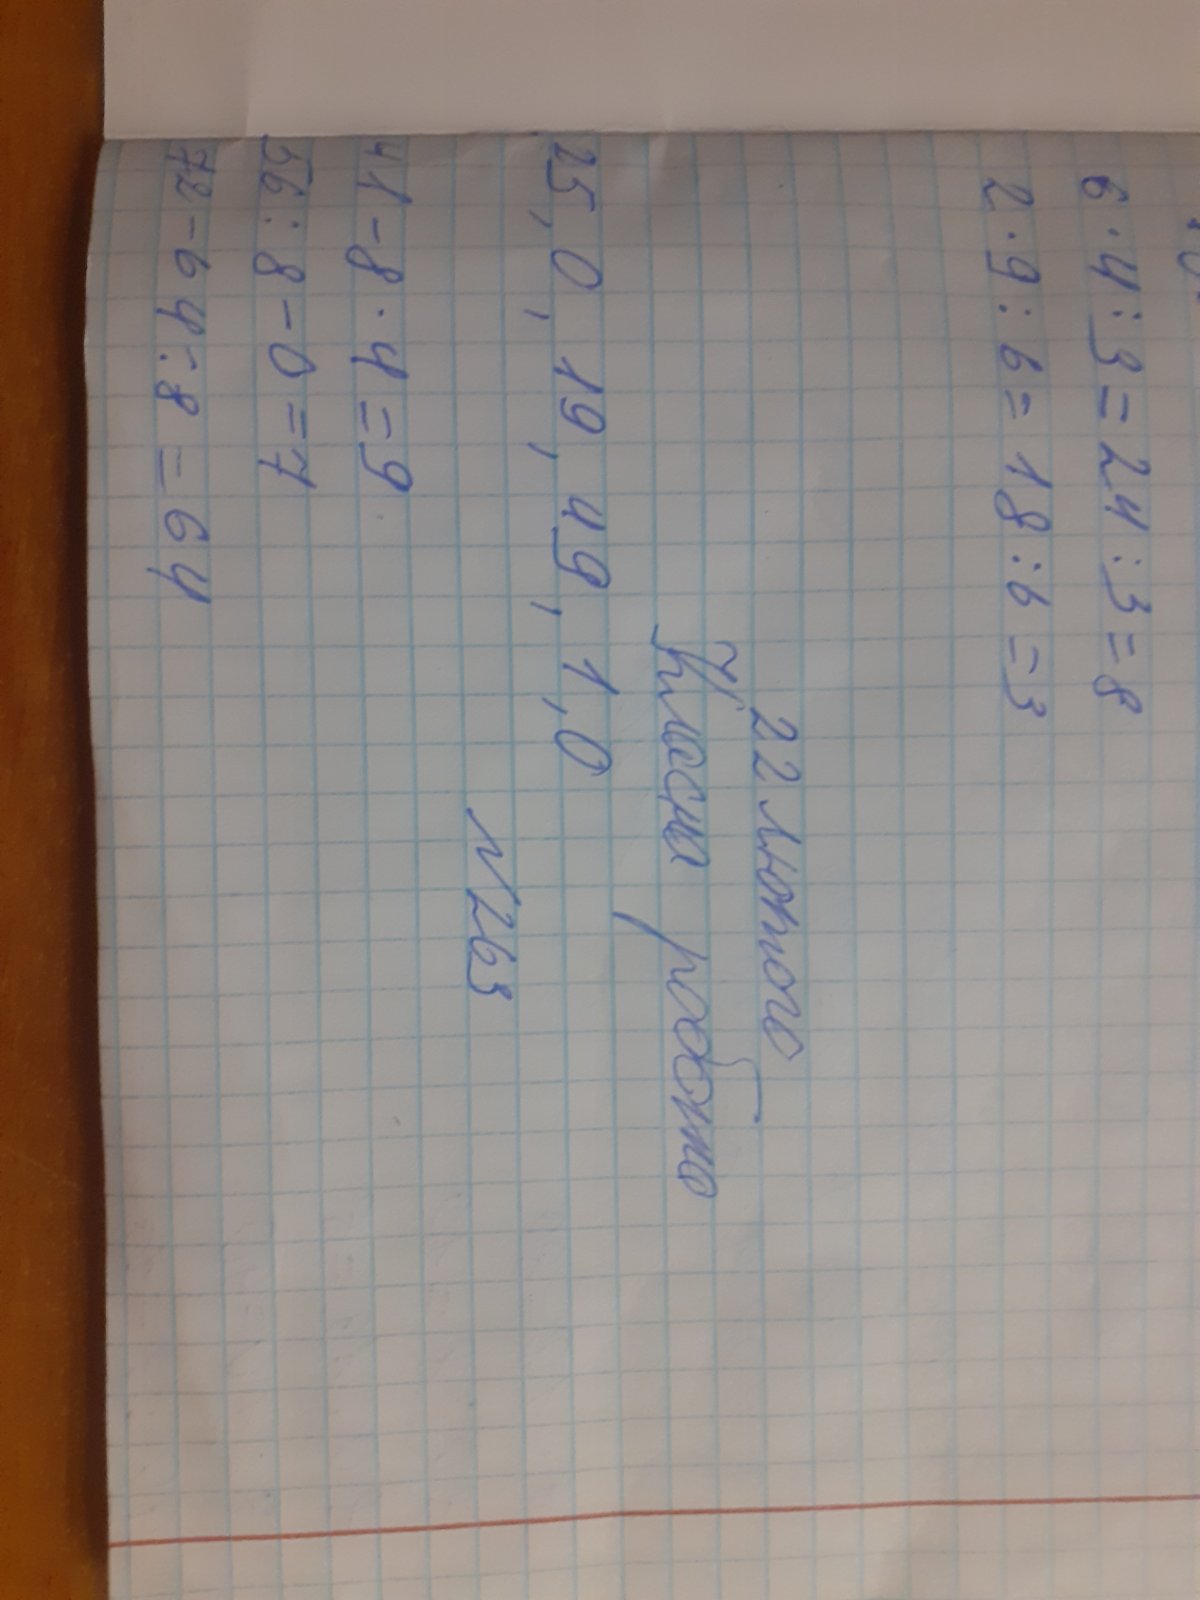 6·4:3=24:3=8
2·9:6=18:6=3
22 лютого
Класна робота
25, 0, 19, 49, 1, 0
№263
41-8·4=9
56:8-0=7
72-64:8=64